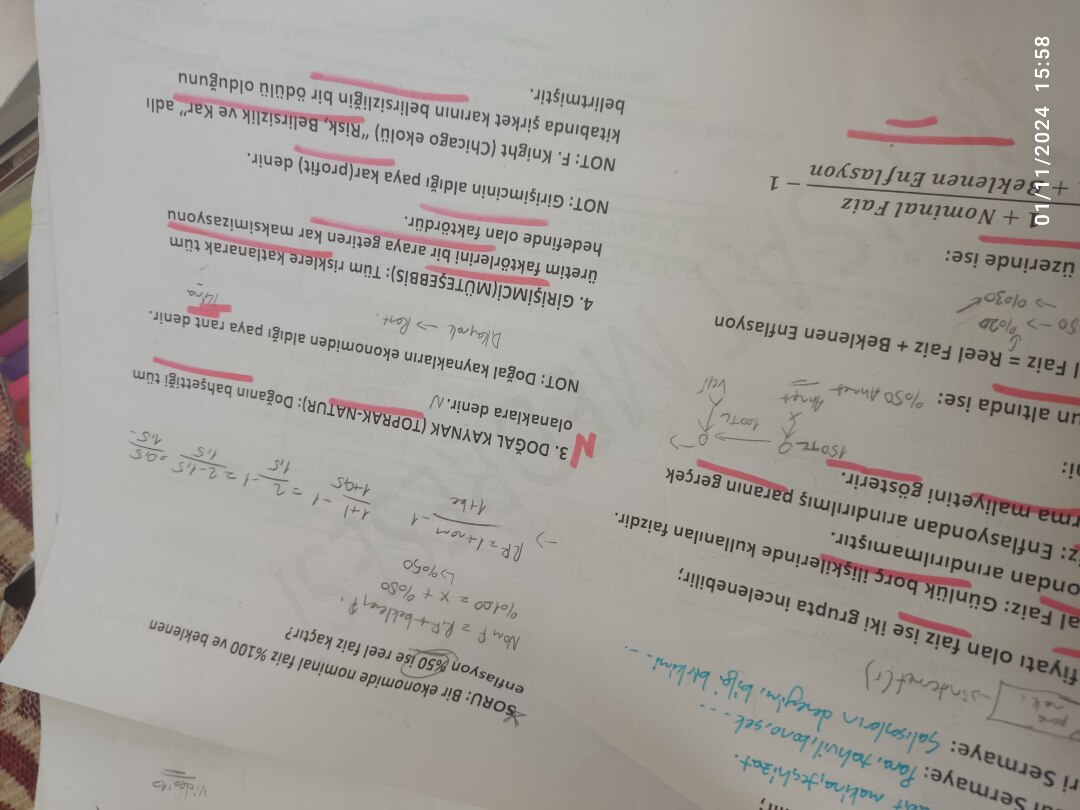 SORU: Bir ekonomide nominal faiz %100 ve beklenen
enflasyon %50 ise reel faiz kaçtır?
Nom F = R.F + beklenen F.
%100 = x + %50
↳ %50
RF = 1+nom / 1+be - 1
→ 1+1 / 1+0,5 - 1 = 2 / 1,5 - 1 = 2-1,5 / 1,5 = 0,5 / 1,5
3. DOĞAL KAYNAK (TOPRAK-NATUR): Doğanın bahşettiği tüm
olanaklara denir. N
NOT: Doğal Kaynakların ekonomiden aldığı paya rant denir.
D.kaynak → Rant.
4. GİRİŞİMCİ(MÜTEŞEBBİS): Tüm risklere katlanarak tüm
üretim faktörlerini bir araya getiren kar maksimizasyonu
hedefinde olan faktördür.
NOT: Girişimcinin aldığı paya kar(profit) denir.
NOT: F. Knight (Chicago ekolü) “Risk, Belirsizlik ve Kar” adlı
kitabında şirket karının belirsizliğin bir ödülü olduğunu
belirtmiştir.
makina, teçhizat.
Sermaye: Para, tahvil, bono, sek ...
ri Sermaye: Çalışanların deneyimi, bilgi birikimi ...
fiyatı olan faiz ise iki grupta incelenebilir;
al Faiz: Günlük borç ilişkilerinde kullanılan faizdir.
ondan arındırılmamıştır.
iz: Enflasyondan arındırılmış paranın gerçek
rma maliyetini gösterir.
150TL
100TL
Ahmet
Veli
un altında ise: %50
l Faiz = Reel Faiz + Beklenen Enflasyon
50 → %20
→ %30
üzerinde ise:
1 + Nominal Faiz
+ Beklenen Enflasyon
- 1
Video 12
01/11/2024 15:58